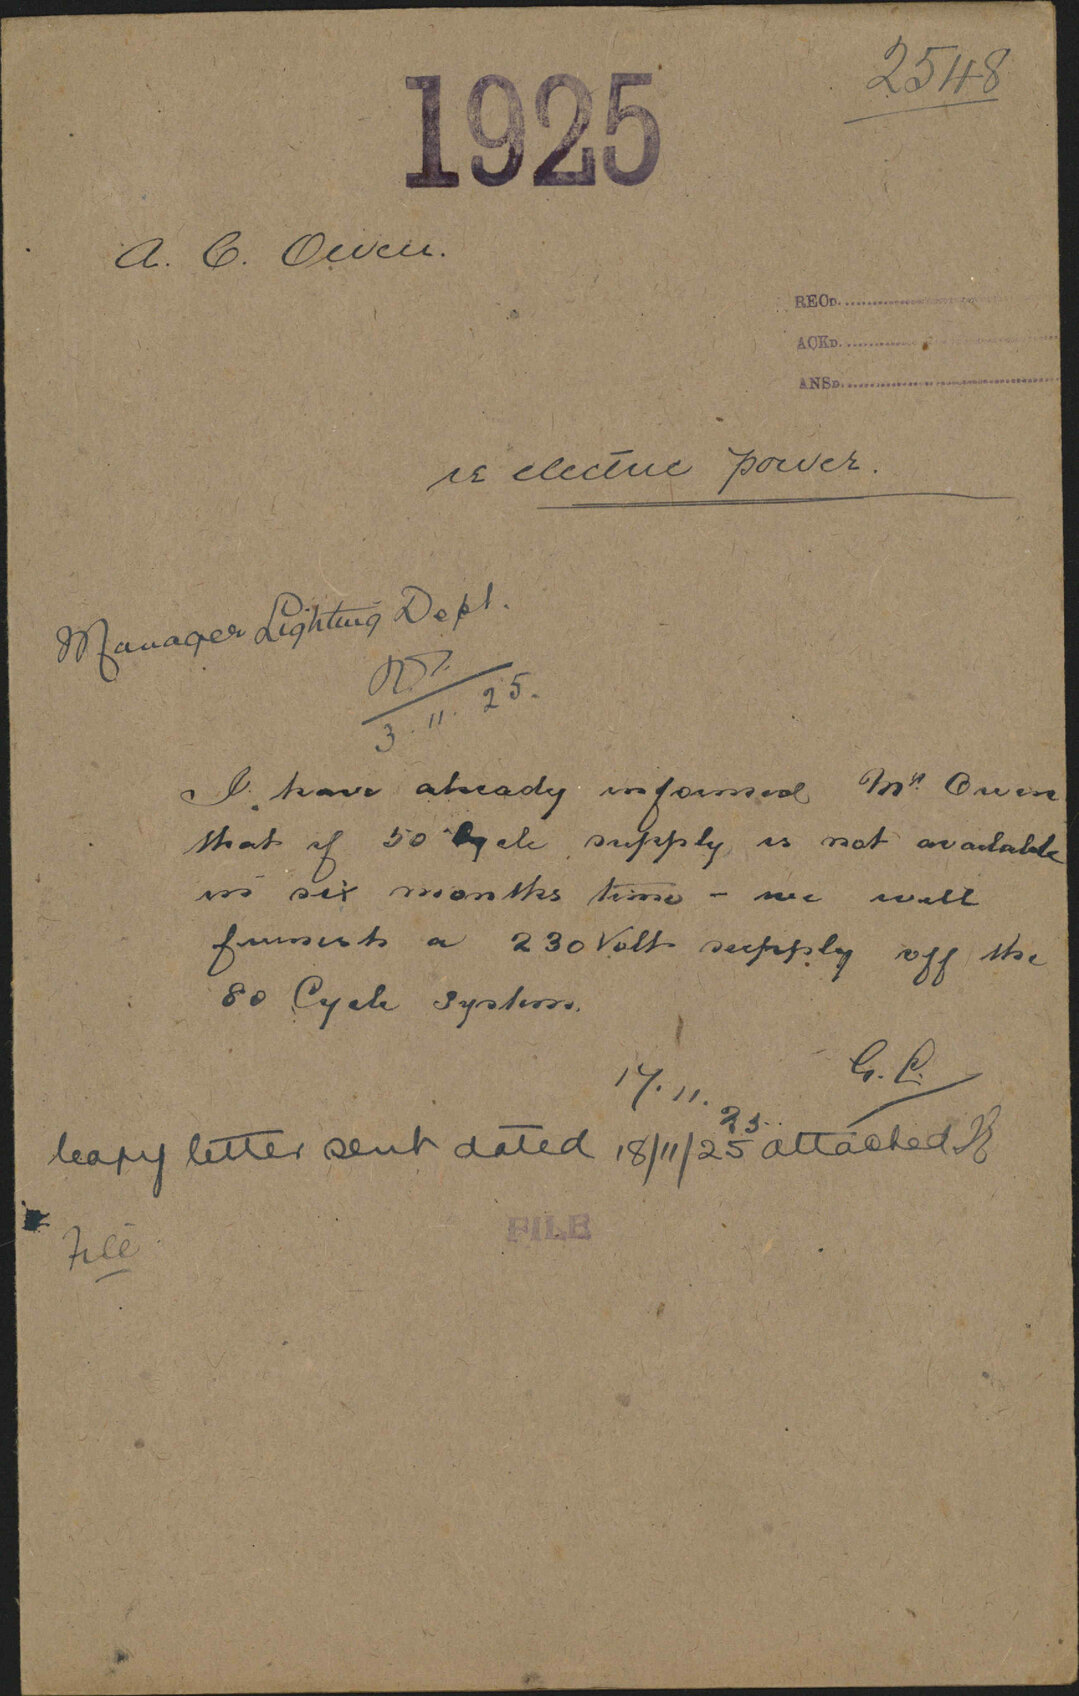 2548
1925
A. C. Owen.
RECD.
ACKD.
ANSD.
re electric power.
Manager Lighting Dept.
3. 11. 25.
I have already informed Mr. Owen
that if 50 Cycle supply is not available
in six months time - we will
furnish a 230 Volt supply off the
80 Cycle system.
G. C.
17. 11. 25.
Copy letter sent dated 18/11/25 attached
FILE
File